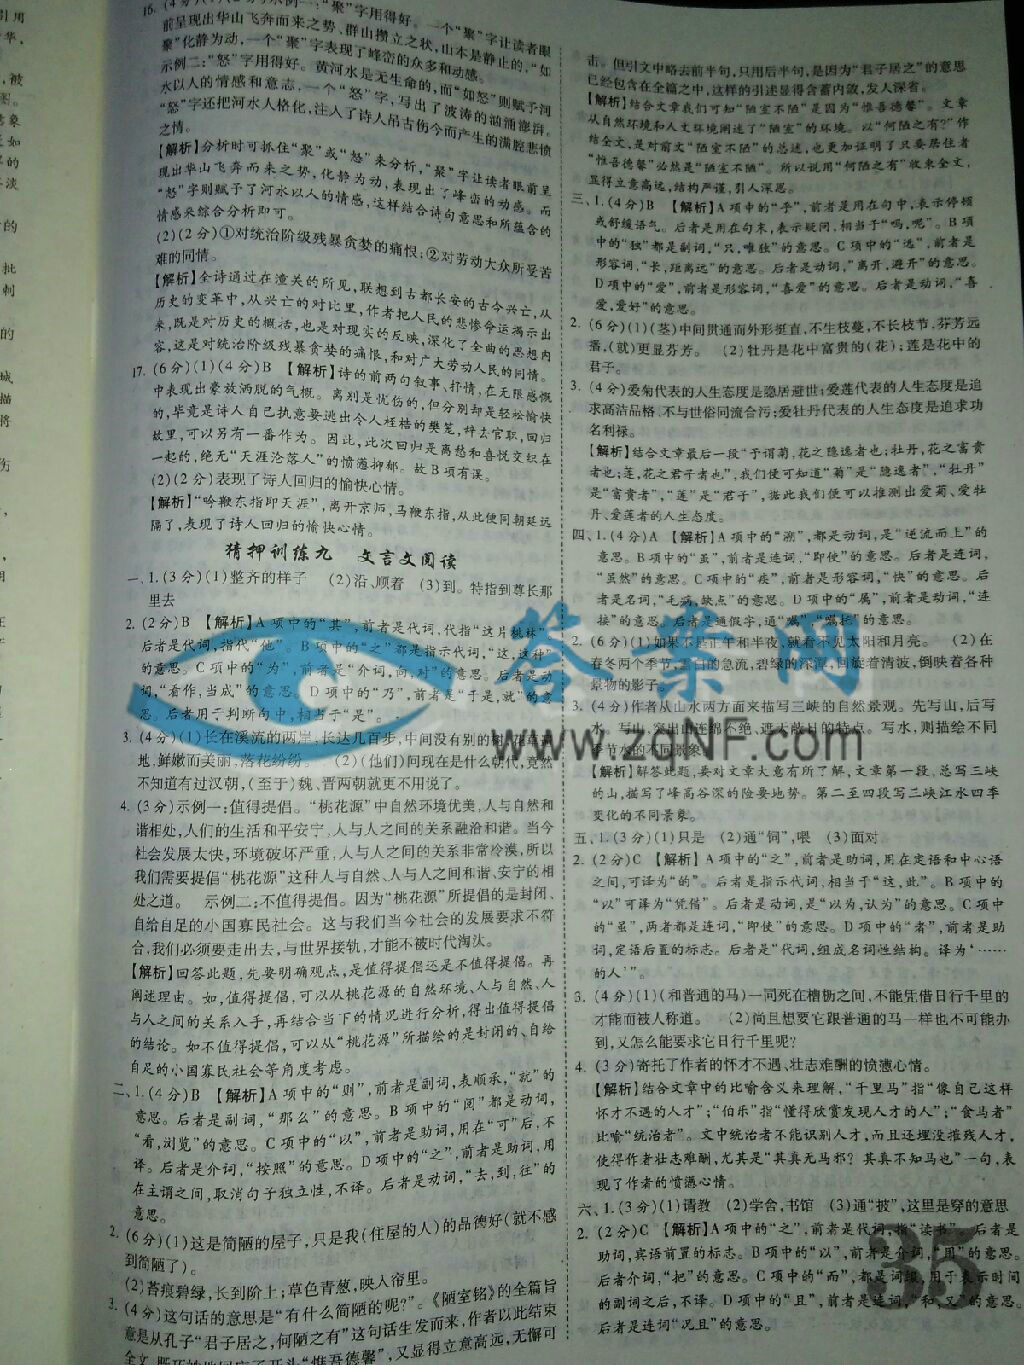 前呈现出华山飞奔而来之势、群山攒立之状,山本是静止的,“如
聚”化静为动,一个“聚”字表现了峰峦的众多和动感。
示例二:“怒”字用得好。黄河水是无生命的,而“如怒”则赋予河
水以人的情感和意志,一个“怒”字,写出了波涛的汹涌澎湃。
“怒”字还把河水人格化,注入了诗人吊古伤今而产生的满腔悲愤
之情。
【解析】分析时可抓住“聚”或“怒”来分析,“聚”字让读者眼前呈
现出华山飞奔而来之势,化静为动,表现出了峰峦的动感。而
“怒”字则赋予了河水以人的情感,这样结合诗句意思和所蕴含的
情感来综合分析即可。
(2)(2分)①对统治阶级残暴贪婪的痛恨;②对劳动大众所受苦
难的同情。
【解析】全诗通过在潼关的所见,联想到古都长安的古今兴亡,从
历史的变革中,从兴亡的对比里,作者把人民的悲惨命运揭示出
来,既是对历史的概括,也是对现实的反映,深化了全曲的思想内
容,这是对统治阶级残暴贪婪的痛恨,和对广大劳动人民的同情。
17. (6分)(1)(4分)B 【解析】诗的前两句叙事、抒情,在无限感慨
中表现出豪放洒脱的气概。离别是忧伤的,但分别却是轻松愉快
的,毕竟是诗人自己执意要逃出令人桎梏的樊笼,辞去官职,回归
故里,可以另有一番作为。因此,此次回归是离愁和喜悦交织在
一起的,绝无“天涯沦落人”的愤懑抑郁。故B项有误。
(2)(2分)表现了诗人回归的愉快心情。
【解析】“吟鞭东指即天涯”,离开京师,马鞭东指,从此便同朝廷远
隔了,表现了诗人回归的愉快心情。
猜押训练九 文言文阅读
一、1. (3分)(1)整齐的样子 (2)沿、顺着 (3)到。特指到尊长那
里去
2. (2分)B 【解析】A项中的“其”,前者是代词,代指“这片桃林”,
后者是代词,指代“他”。B项中的“之”都是指示代词,“这,这种”
的意思。C项中的“为”,前者是“介词,向,对”的意思。后者是动
词,“看作,当成”的意思。D项中的“乃”,前者是“于是,就”的意
思。后者用于判断句中,相当于“是”。
3. (4分)(1)长在溪流的两岸,长达几百步,中间没有别的树,花草遍
地,鲜嫩而美丽,落花纷纷。 (2)(他们)问现在是什么朝代,竟然
不知道有过汉朝,(至于)魏、晋两朝就更不用说了。
4. (3分)示例一:值得提倡。“桃花源”中自然环境优美,人与自然和
谐相处,人们的生活和平安宁,人与人之间的关系融洽和谐。当今
社会发展太快,环境破坏严重,人与人之间的关系非常冷漠,所以
我们需要提倡“桃花源”这种人与自然、人与人之间和谐、安宁的相
处之道。 示例二:不值得提倡。因为“桃花源”所提倡的是封闭、
自给自足的小国寡民社会。这与我们当今社会的发展要求不符
合,我们必须要走出去,与世界接轨,才能不被时代淘汰。
【解析】回答此题,先要明确观点,是值得提倡还是不值得提倡。再
阐述理由。如,值得提倡,可以从桃花源的自然环境、人与自然、人
与人之间的关系入手,再结合当下的情况进行分析,得出值得提倡
的结论。如不值得提倡,可以从“桃花源”所描绘的是封闭的、自给
自足的小国寡民社会等角度考虑。
二、1. (4分)B 【解析】A项中的“则”,前者是副词,表顺承,“就”的
意思。后者是副词,“那么”的意思。B项中的“阅”都是动词,
“看,浏览”的意思。C项中的“以”,前者是助词,用在“可”后,不
译。后者是介词,“按照”的意思。D项中的“之”,前者是助词,用
在主谓之间,取消句子独立性,不译。后者是动词,“去,到,往”的
意思。
2. (6分)(1)这是简陋的屋子,只是我(住屋的人)的品德好(就不感
到简陋了)。
(2)苔痕碧绿,长到阶上;草色青葱,映入帘里。
3. (4分)这句话的意思是“有什么简陋的呢?”。《陋室铭》的全篇旨
意是从孔子“君子居之,何陋之有”这句话生发而来,作者以此结束
击。但引文中略去前半句,只用后半句,是因为“君子居之”的意思
已经包含在全篇之中,这样的引述显得含蓄内敛,发人深省。
【解析】结合文章我们可知“陋室不陋”是因为“惟吾德馨”。文章
从自然环境和人文环境阐述了“陋室”的环境。以“何陋之有?”作
结全文,是对前文“陋室不陋”的总述,也更加证明了只要居住者
“惟吾德馨”必然是“陋室不陋”。所以说用“何陋之有”收束全文,
显得立意高远,结构严谨,引人深思。
三、1. (4分)B 【解析】A项中的“乎”,前者是用在句中,表示停顿
或舒缓语气。后者是用在句末,表示疑问,相当于“吗,呢”。B项
中的“独”都是副词,“只,唯独”的意思。C项中的“远”,前者是
形容词,“长,距离远”的意思。后者是动词,“离开,避开”的意思。
D项中的“爱”,前者是形容词,“喜爱”的意思。后者是动词,“喜
爱,爱好”的意思。
2. (6分)(1)(茎)中间贯通而外形挺直,不生枝蔓,不长枝节,芬芳远
播,(就)更显芬芳。 (2)牡丹是花中富贵的(花);莲是花中的
君子。
3. (4分)爱菊代表的人生态度是隐居避世;爱莲代表的人生态度是追
求高洁品格,不与世俗同流合污;爱牡丹代表的人生态度是追求功
名利禄。
【解析】结合文章最后一段“予谓菊,花之隐逸者也;牡丹,花之富贵
者也;莲,花之君子者也”,我们便可知道“菊”是“隐逸者”,“牡丹”
是“富贵者”,“莲”是“君子”,据此我们便可以推测出爱菊、爱牡
丹、爱莲者的人生态度。
四、1. (4分)A 【解析】A项中的“溯”,都是动词,是“逆流而上”的
意思。B项中的“虽”,前者是连词,“即使”的意思。后者是连词,
“虽然”的意思。C项中的“疾”,前者是形容词,“快”的意思。后
者是名词,“毛病,缺点”的意思。D项中的“属”,前者是动词,“连
接”的意思,后者是通假字,通“嘱”,“嘱托”的意思。
2. (6分)(1)如果不是正午和半夜,就看不见太阳和月亮。 (2)在
春冬两个季节,雪白的急流,碧绿的深潭,回旋着清波,倒映着各种
景物的影子。
3. (4分)作者从山水两方面来描写三峡的自然景观。先写山,后写
水。写山,突出山连绵不绝、遮天蔽日的特点。写水,则描绘不同
季节水的不同景象。
【解析】解答此题,要对文章大意有所了解,文章第一段,总写三峡
的山,描写了峰高谷深的险要地势。第二至四段写三峡江水四季
变化的不同景象。
五、1. (3分)(1)只是 (2)通“饲”,喂 (3)面对
2. (2分)C 【解析】A项中的“之”,前者是助词,用在定语和中心语
之间,可译为“的”。后者是指示代词,相当于“这,此”。B项中的
“以”可译为“凭借”。后者是动词,是“以为,认为”的意思。C项中
的“虽”,两者都是连词,“即使”的意思。D项中的“者”,前者是助
词,定语后置的标志。后者是“代词,组成名词性结构。译为‘……
的人’”。
3. (4分)(1)(和普通的马)一同死在槽枥之间,不能凭借日行千里的
才能而被人称道。 (2)尚且想要它跟普通的马一样也不可能办
到,又怎么能要求它日行千里呢?
4. (3分)寄托了作者的怀才不遇,壮志难酬的愤懑心情。
【解析】结合文章中的比喻含义来理解,“千里马”指“像自己这样
怀才不遇的人才”;“伯乐”指“懂得欣赏发现人才的人”;“食马者”
比喻“统治者”。文中统治者不能识别人才,而且还埋没摧残人才,
使得作者壮志难酬,尤其是“其真无马邪?其真不知马也”一句,表
现了作者的愤懑心情。
六、1. (3分)(1)请教 (2)学舍,书馆 (3)通“披”,这里是穿的意思
2. (2分)C 【解析】A项中的“之”,前者是代词,指“读书”。后者是
助词,宾语前置的标志。B项中的“以”,前者是介词,“用”的意思。
后者介词,“把”的意思。C项中的“而”,都是词缀,用于表示时间
的副词之后,不译。D项中的“且”,前者是连词,“和,又”的意思。
后者是连词“况且”的意思。
35
答案网
www.zqNF.com